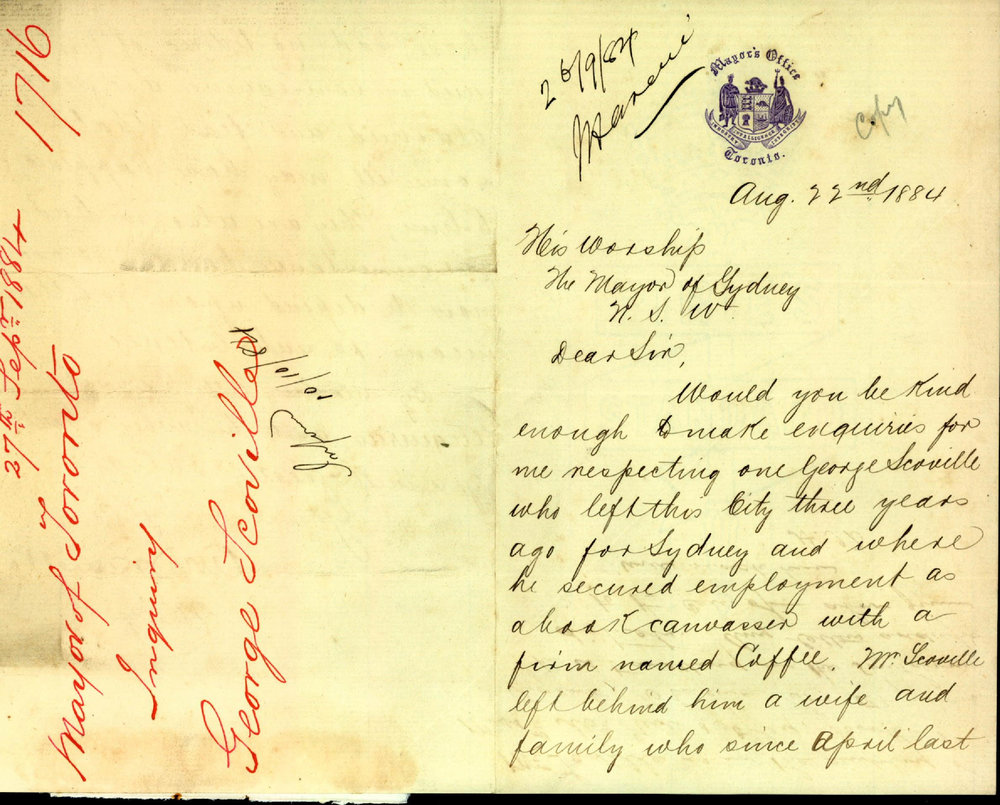 1716
27th Sepr 1884
Mayor of Toronto
Inquiry
George Scoville
10/10/84
26/9/84
Mayor's Office
Toronto.
Copy
Aug. 22nd 1884
His Worship
The Mayor of Sydney
N. S. W.
Dear Sir,
Would you be kind
enough to make enquiries for
me respecting one George Scoville
who left this City three years
ago for Sydney and where
he secured employment as
a book canvasser with a
firm named Coffee. Mr Scoville
left behind him a wife and
family who since April last